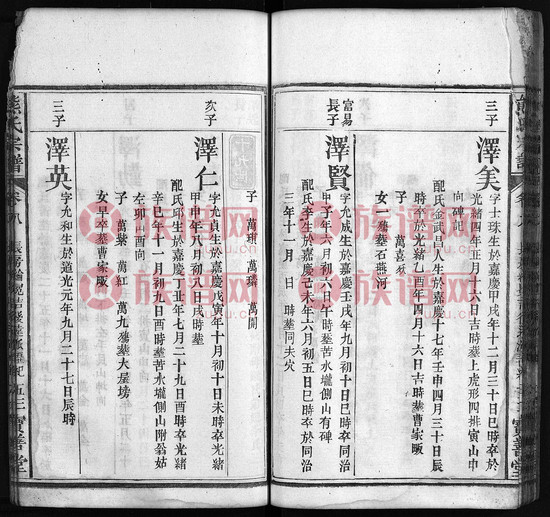 三子
澤美
字士珠生於嘉慶甲戌年十二月三十日巳時卒於
光緒四年正月十六日吉時塟上虎形四排寅山申
向碑記
配氏金武昌人生於嘉慶十七年壬申四月三十日辰
時卒於光緒乙酉年四月十六日吉時塟曹家畈
子 萬喜
富易
長子
澤賢
字九成生於嘉慶壬戌年九月初十日巳時卒於同治
甲子年六月初六日午時塟苦水壠側山有碑
配氏李生於嘉慶己未年六月初五日巳時卒於同治
三年十一月 日 時塟同夫穴
女一 塟石燕河
子 萬瓆 萬璘 萬開
次子
澤仁
字九貞生於嘉慶戊寅年十月初十日未時卒光緒
甲申年八月初六日戌時塟
配氏邱生於嘉慶丁丑年七月二十九日酉時卒光緒
辛巳年十一月初九日酉時塟苦水壠側山附翁姑
左卯山酉向
子 萬葉 萬紅 萬九殤塟大屋塝
女早卒塟曹家畈
三子
澤英
字九和生於道光元年九月二十七日辰時
熊氏宗譜
卷八
五三
寶善堂
族谱网
族谱网
族谱网
族谱网